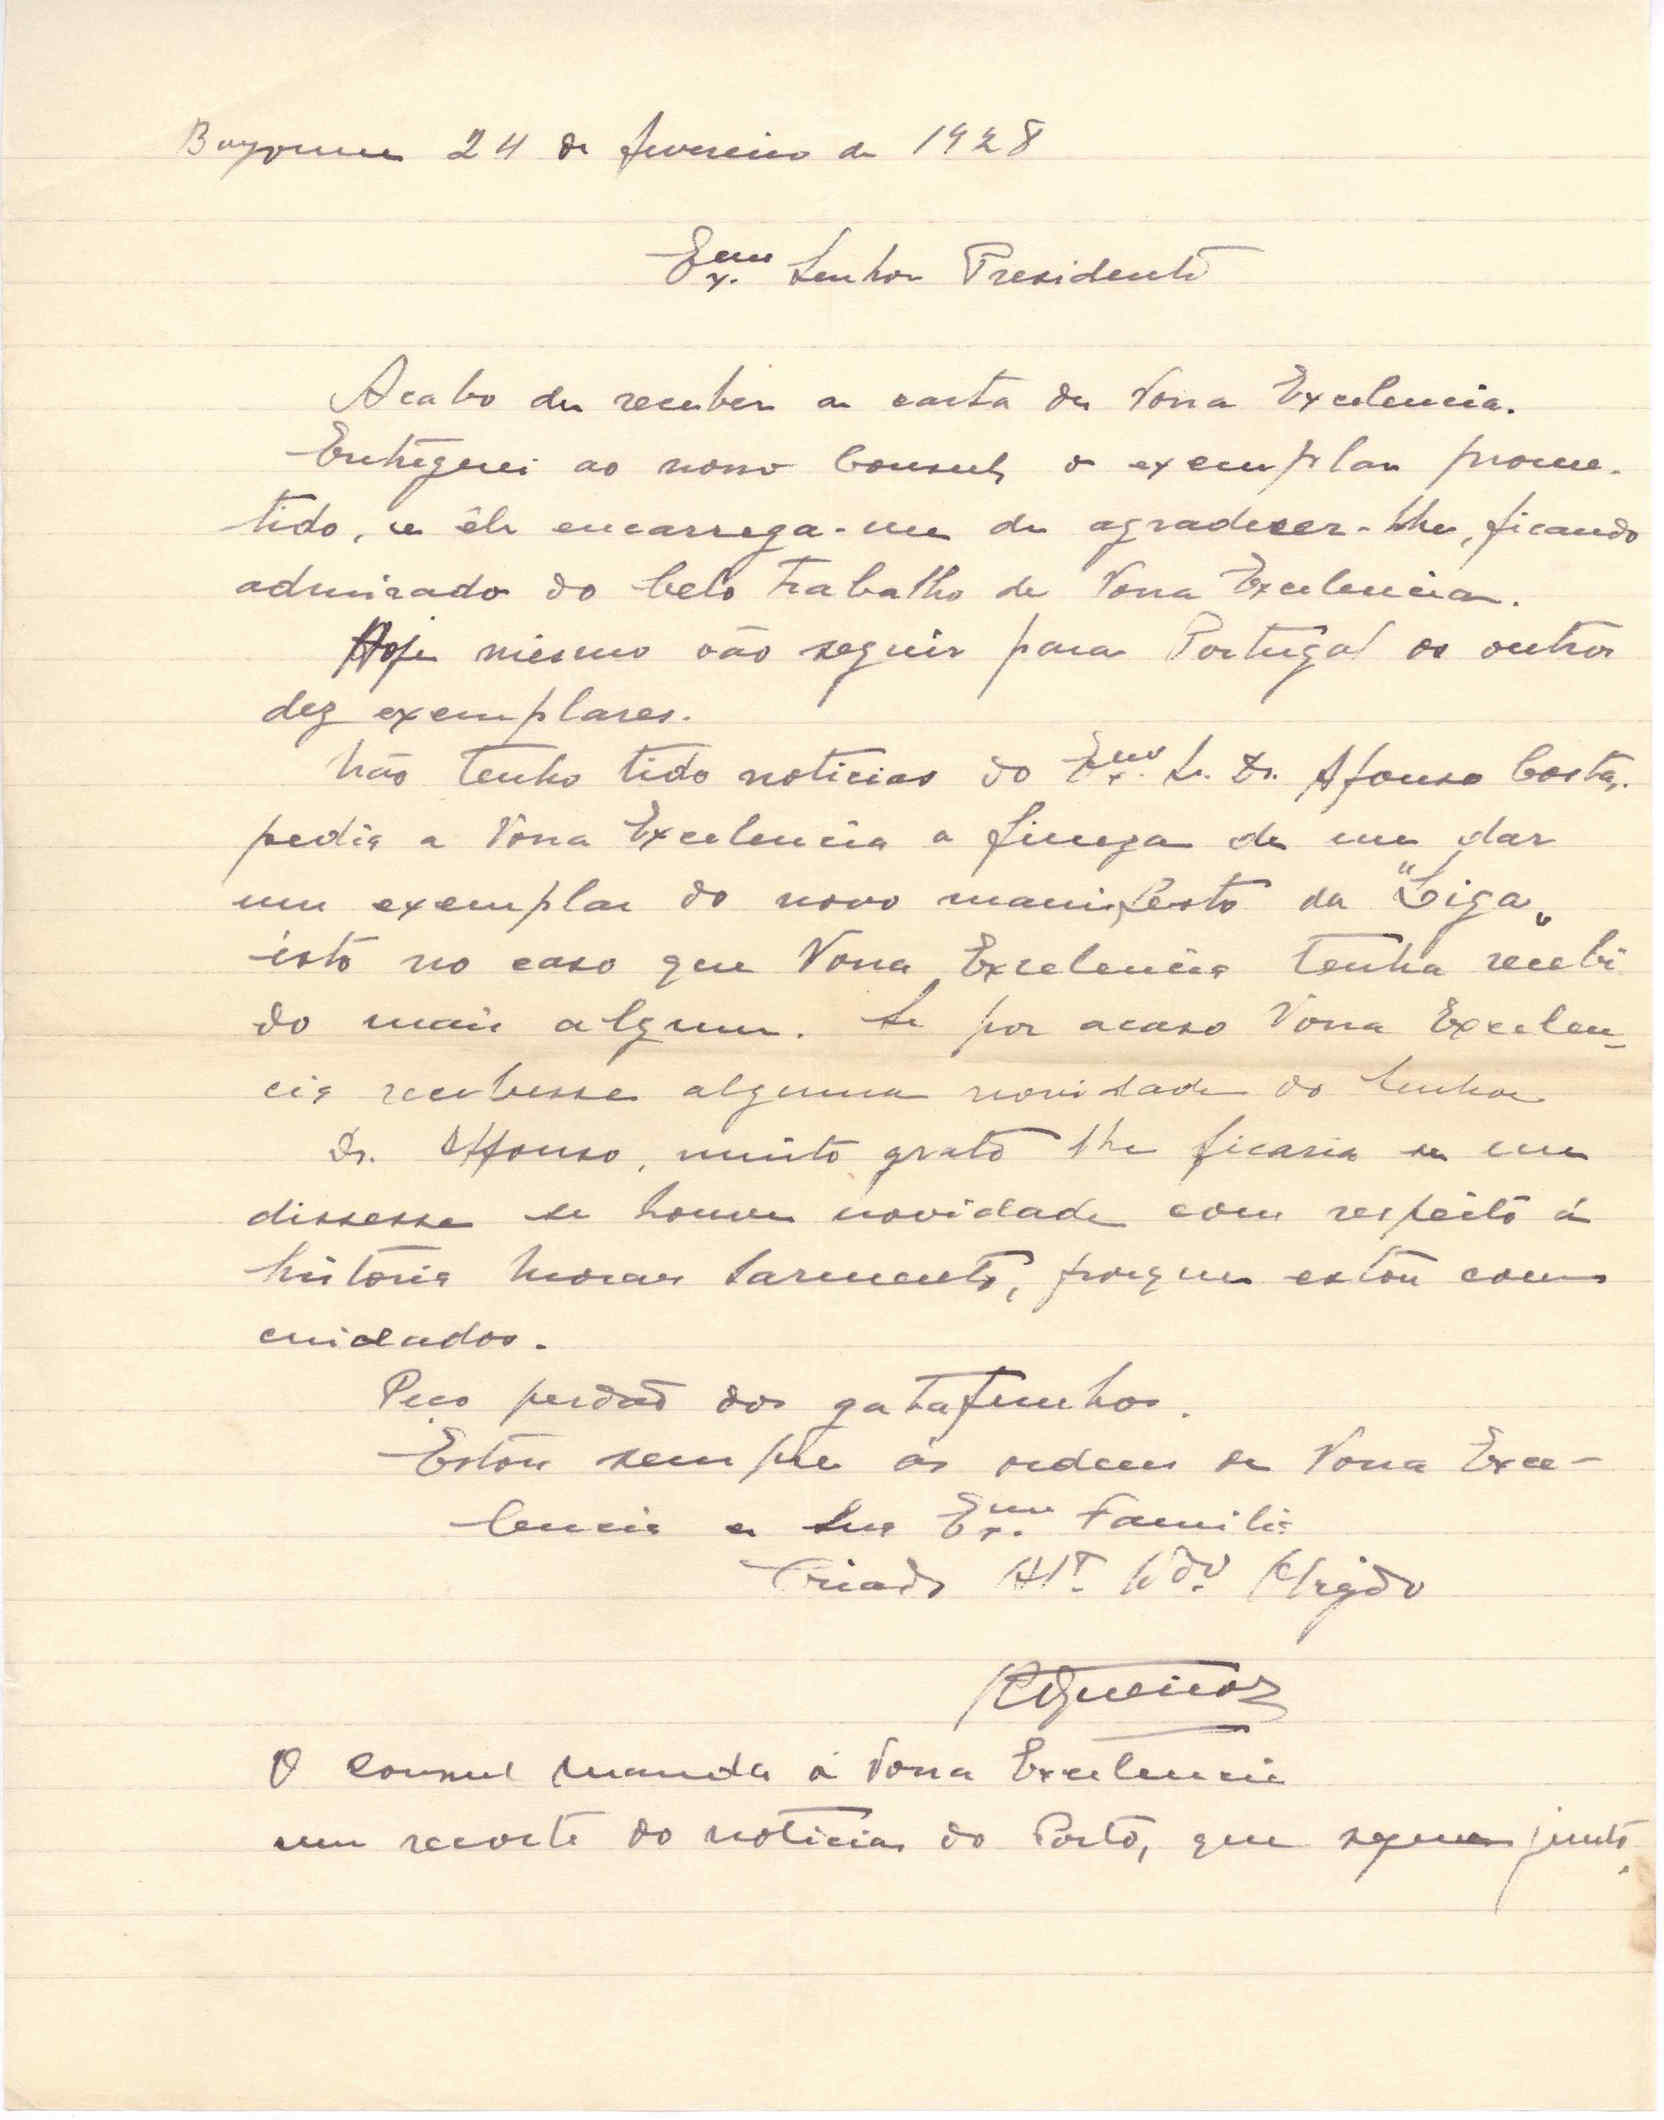 Bayonne 24 de fevereiro de 1928
Exmo. Senhor Presidente
Acabo de receber a carta de Vossa Excelencia.
Entreguei ao nosso Consul, o exemplar prome-
tido, e êle encarrega-me de agradecer-lhe, ficando
admirado do belo trabalho de Vossa Excelencia.
Hoje mesmo vão seguir para Portugal os outros
dez exemplares.
Não tenho tido noticias do Exmo. Sr. Dr. Afonso Costa,
pedia a Vossa Excelencia a fineza de me dar
um exemplar do novo manifesto da "Liga"
isto no caso que Vossa Excelencia tenha recebi
do mais algum. Se por acaso Vossa Excelen-
cia recebesse alguma novidade do Senhor
Dr. Affonso, muito grato lhe ficaria se me
dissesse se houve novidade com respeito á
historia Moraes Sarmento, porque estou com
cuidados.
Peço perdão dos gatafunhos.
Estou sempre ás ordens de Vossa Exce-
lencia e Sua Exma. Familia
Criado At. Vdor. Obrigdo
O Consul manda a Vossa Excelencia
um recorte do noticias do Porto, que segue junto.